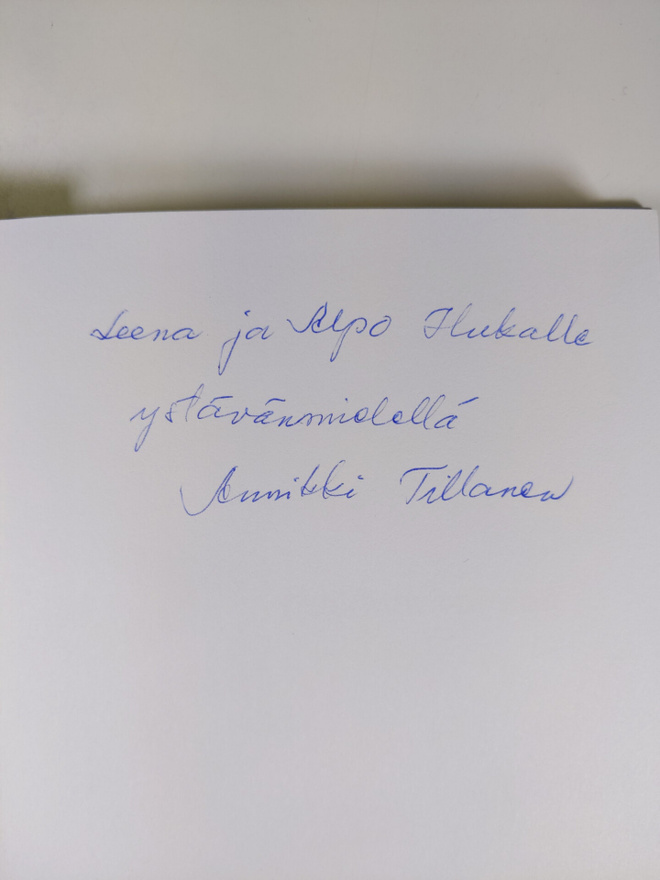 Leena ja Alpo Hukalle
ystävänmielellä
Annikki Tillanen